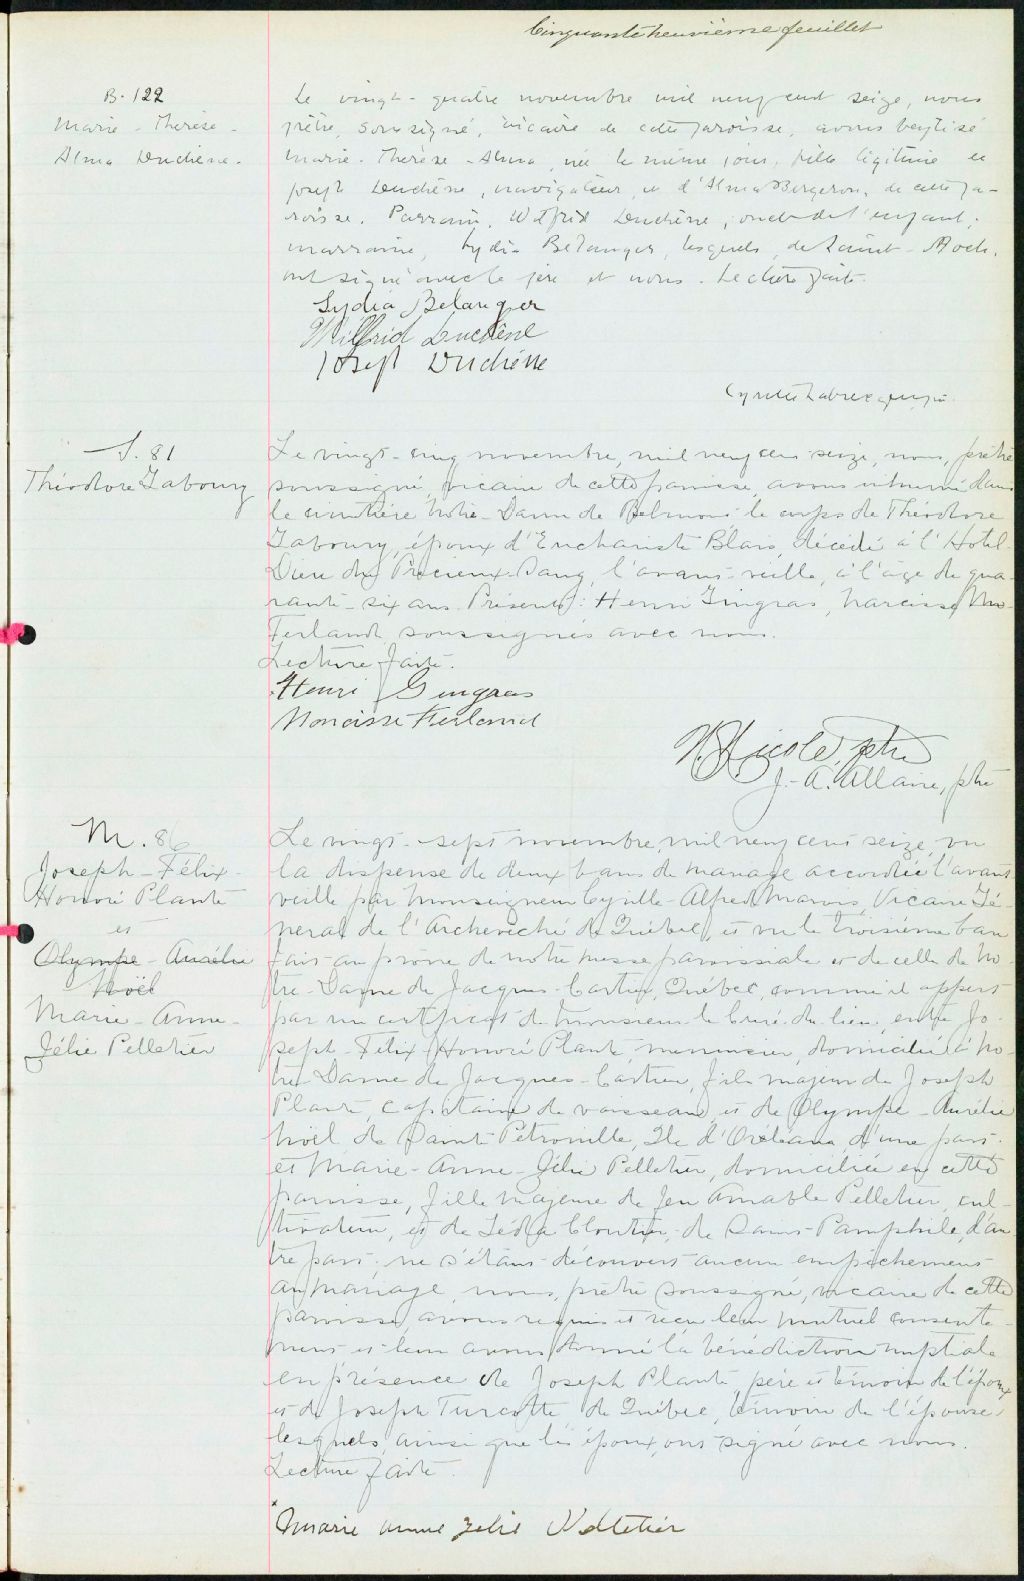 Cinquante neuvième feuillet
B. 122
Marie-Thérèse-
Alma Duchêne.
Le vingt-quatre novembre mil neuf cent seize, nous
prêtre, soussigné, vicaire de cette paroisse, avons baptisé
Marie-Thérèse-Alma, née le même jour, fille légitime de
Joseph Duchêne, navigateur, et d'Alma Bergeron, de cette pa-
roisse. Parrain, Wilfrid Duchêne, oncle de l'enfant;
marraine, Lydia Bélanger, lesquels, de Saint-Roch,
ont signé avec le père et nous. Lecture faite.
Lydia Belanger
Wilfrid Duchêne
Joseph Duchêne
Cyrille Labrecque, ptre
S. 81
Théodore Taboury
Le vingt-cinq novembre, mil neuf cent seize, nous, prêtre
soussigné, vicaire de cette paroisse, avons inhumé dans
le cimetière Notre-Dame de Belmont le corps de Théodore
Taboury, époux d'Euchariste Blais, décédé à l'Hôtel-
Dieu du Précieux-Sang, l'avant-veille, à l'âge de qua-
rante-six ans. Présents: Henri Gingras, Narcisse
Ferland, soussignés avec nous.
Lecture faite.
Henri Gingras
Narcisse Ferland
N. Nicole, ptre
J.-A. Allaire, ptre
M. 86
Joseph-Félix-
Honoré Plante
et
Olympe-Aurélie
Noël
Marie-Anne-
Zélie Pelletier
Le vingt-sept novembre, mil neuf cent seize, vu
la dispense de deux bans de mariage accordée l'avant-
veille par Monseigneur Cyrille-Alfred Marois, Vicaire Gé-
néral de l'Archevêché de Québec, et vu le troisième ban
fait au prône de notre messe paroissiale et de celle de No-
tre-Dame de Jacques-Cartier, Québec, comme il appert
par un certificat de Monsieur le Curé du lieu, entre Jo-
seph-Félix-Honoré Plante, menuisier, domicilié à No-
tre-Dame de Jacques-Cartier, fils majeur de Joseph
Plante, capitaine de vaisseau, et de Olympe-Aurélie
Noël de Sainte-Pétronille, Ile d'Orléans, d'une part;
et Marie-Anne-Zélie Pelletier, domiciliée en cette
paroisse, fille majeure de feu Amable Pelletier, cul-
tivateur, et de Léda Cloutier, de Saint-Pamphile, d'au-
tre part; ne s'étant découvert aucun empêchement
au mariage, nous, prêtre soussigné, vicaire de cette
paroisse, avons requis et reçu leur mutuel consente-
ment et leur avons donné la bénédiction nuptiale
en présence de Joseph Plante, père et témoin de l'époux
et de Joseph Turcotte, de Québec, témoin de l'épouse
lesquels, ainsi que les époux, ont signé avec nous.
Lecture faite.
Marie Anne Zelie Pelletier